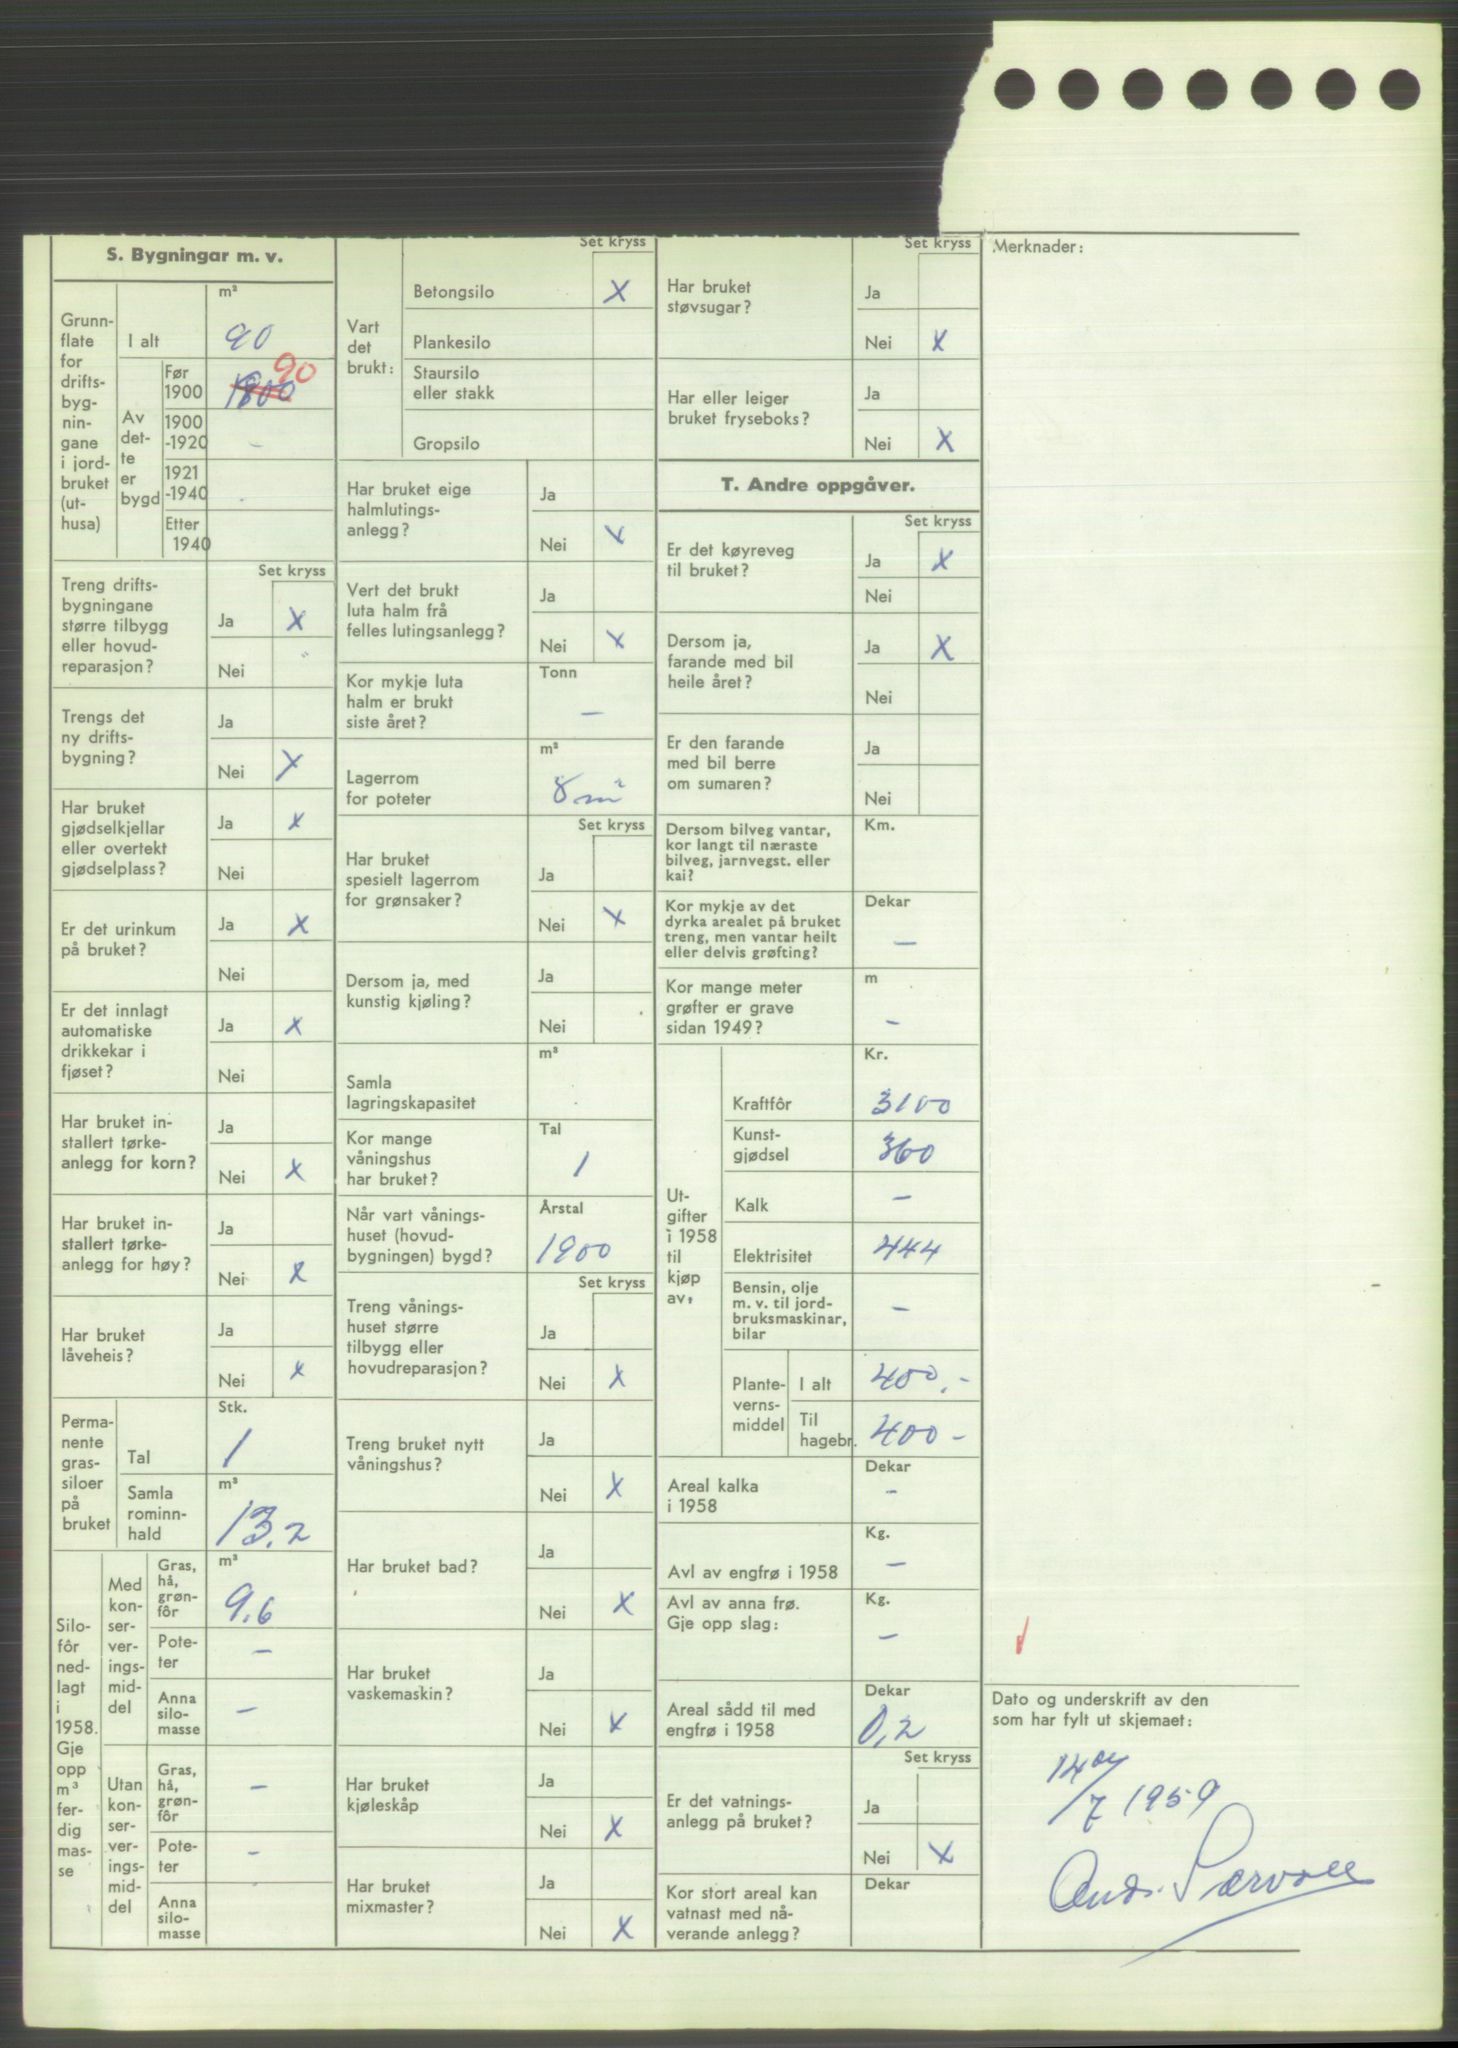 S. Bygningar m. v.
Grunn-
flate
for
drifts-
byg-
nin-
gane
i jord-
bruket
(ut-
husa)
m²
I alt
90
Av
det-
te
er
bygd
Før
1900
1800
90
1900
-1920
-
1921
-1940
Etter
1940
Set kryss
Treng drifts-
bygningane
større tilbygg
eller hovud-
reparasjon?
Ja X
Nei
Trengs det
ny drifts-
bygning?
Ja
Nei X
Har bruket
gjødselkjellar
eller overtekt
gjødselplass?
Ja X
Nei
Er det urinkum
på bruket?
Ja X
Nei
Er det innlagt
automatiske
drikkekar i
fjøset?
Ja X
Nei
Har bruket in-
stallert tørke-
anlegg for korn?
Ja
Nei X
Har bruket in-
stallert tørke-
anlegg for høy?
Ja
Nei X
Har bruket
låveheis?
Ja
Nei X
Perma-
nente
gras-
siloer
på
bruket
Stk.
Tal
1
m³
Samla
rominn-
hald
13,2
Silo-
fôr
ned-
lagt
i
1958.
Gje
opp
m³
fer-
dig
mas-
se
Med
kon-
ser-
ver-
ings-
mid-
del
m³
Gras,
hå,
grøn-
fôr
9,6
Pote-
ter
-
Anna
silo-
masse
-
Utan
kon-
ser-
ver-
ings-
mid-
del
Gras,
hå,
grøn-
fôr
-
Pote-
ter
-
Anna
silo-
masse
Set kryss
Vart
det
brukt:
Betongsilo X
Plankesilo
Staursilo
eller stakk
Gropsilo
Har bruket eige
halmlutings-
anlegg?
Ja
Nei X
Vert det brukt
luta halm frå
felles lutingsanlegg?
Ja
Nei X
Kor mykje luta
halm er brukt
siste året?
Tonn
-
Lagerrom
for poteter
m²
8 m²
Set kryss
Har bruket
spesielt lagerrom
for grønsaker?
Ja
Nei X
Dersom ja, med
kunstig kjøling?
Ja
Nei
Samla
lagringskapasitet
m³
Kor mange
våningshus
har bruket?
Tal
1
Når vart vånings-
huset (hovud-
bygningen) bygd?
Årstal
1900
Set kryss
Treng vånings-
huset større
tilbygg eller
hovudreparasjon?
Ja
Nei X
Treng bruket nytt
våningshus?
Ja
Nei X
Har bruket bad?
Ja
Nei X
Har bruket
vaskemaskin?
Ja
Nei X
Har bruket
kjøleskåp
Ja
Nei X
Har bruket
mixmaster?
Ja
Nei X
Set kryss
Har bruket
støvsugar?
Ja
Nei X
Har eller leiger
bruket fryseboks?
Ja
Nei X
T. Andre oppgåver.
Set kryss
Er det køyreveg
til bruket?
Ja X
Nei
Dersom ja,
farande med bil
heile året?
Ja X
Nei
Er den farande
med bil berre
om sumaren?
Ja
Nei
Dersom bilveg vantar,
kor langt til næraste
bilveg, jarnvegst. eller
kai?
Km.
Kor mykje av det
dyrka arealet på bruket
treng, men vantar heilt
eller delvis grøfting?
Dekar
-
Kor mange meter
grøfter er grave
sidan 1949?
m
-
Ut-
gifter
i 1958
til
kjøp
av:
Kr.
Kraftfôr 3100
Kunst-
gjødsel 360
Kalk -
Elektrisitet 444
Bensin, olje
m. v. til jord-
bruksmaskinar,
bilar -
Plante-
verns-
middel
I alt 400,-
Til
hagebr. 400-
Areal kalka
i 1958
Dekar
-
Avl av engfrø i 1958
Kg.
-
Avl av anna frø.
Gje opp slag:
Kg.
-
Areal sådd til med
engfrø i 1958
Dekar
0,2
Set kryss
Er det vatnings-
anlegg på bruket?
Ja
Nei X
Kor stort areal kan
vatnast med nå-
verande anlegg?
Dekar
Merknader:
Dato og underskrift av den
som har fylt ut skjemaet:
/7 1959